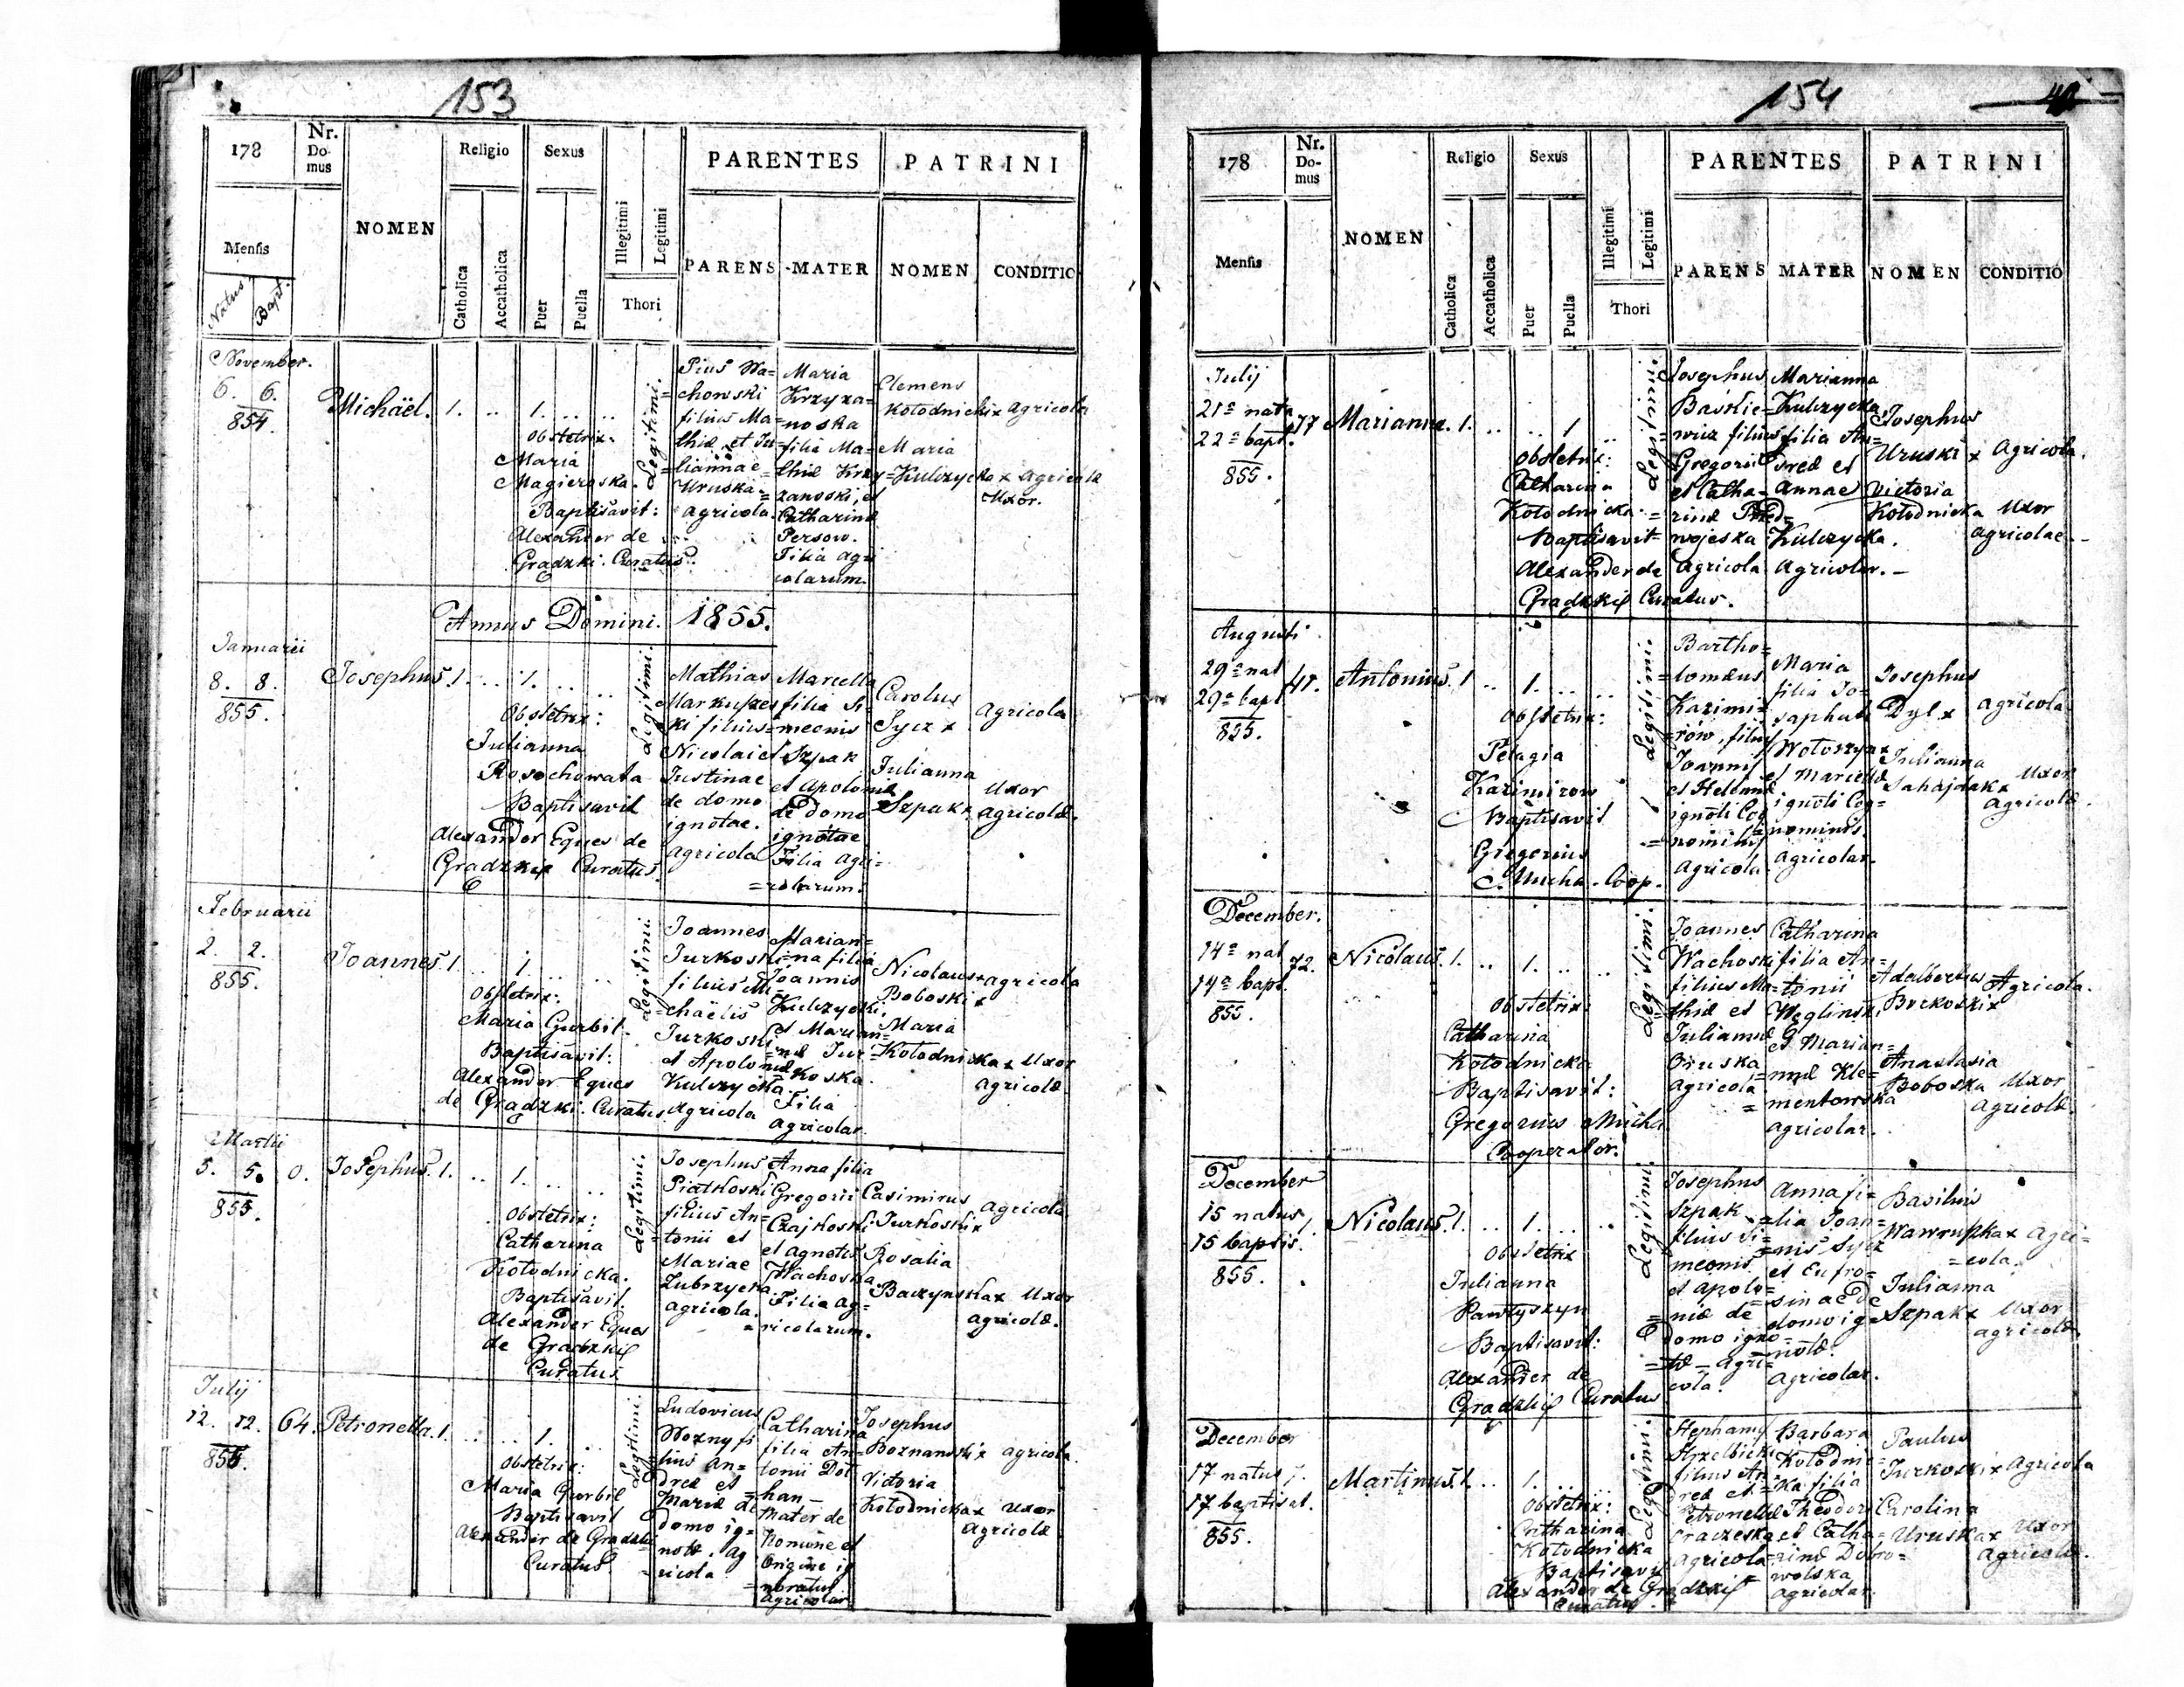 153
178
Nr. Domus
NOMEN
Religio
Sexus
PARENTES
PATRINI
Mensis
Natus
Bapt.
Catholica
Accatholica
Puer
Puella
Illegitimi
Legitimi
Thori
PARENS
MATER
NOMEN
CONDITIO
November.
6. 6.
854.
Michäel. 1. .. 1. .. ..
Obstetrix:
Maria
Magieroska.
Baptisavit:
Alexander de
Gradzki. Curatus.
Legitimi.
Pius Wa=
chowski
filius Ma=
thiæ et Ju=
liannae
Uruska
agricola.
Maria
Krzyza=
noska
filia Ma=
thiæ Krzy=
zanoski, et
Catharinæ
Persow.
Filia agri
colarum.
Clemens
Kołodnicki x agricola
Maria
Kulczycka x agricolæ
Uxor.
Annus Domini. 1855.
Januarii
8. 8.
855.
Josephus. 1. .. 1. .. ..
Obstetrix:
Julianna
Rosochowata
Baptisavit
Alexander Eques de
Gradzkis Curatus.
Legitimi.
Mathias
Markuszes
ki filius
Nicolai et
Justinae
de domo
ignotae.
agricola
Marcella
filia Si=
meonis
Szpak
et Apoloniæ
de domo
ignotae
Filia Agri=
=colarum.
Carolus
Sycz x agricola
Julianna
Szpak x Uxor
agricolæ.
Februarii
2. 2.
855.
Joannes. 1. .. 1. .. ..
Obstetrix:
Maria Gurbil.
Baptisavit:
Alexander Eques
de Gradzki. Curatus
Legitimi.
Joannes
Jurkoski
filius Mi=
chäelis
Jurkoski
et Apoloniæ
Kulczycka
Agricola
Marian=
na filia
Joannis
Kulczycki,
et Marian=
næ Jur=
koska.
Filia
agricolar.
Nicolaus x agricola
Boboski x
Maria
Kołodnicka x Uxor
agricolæ
Martii
5. 5. 0.
855.
Josephus. 1. .. 1. .. ..
Obstetrix:
Catharina
Kołodnicka.
Baptisavit.
Alexander Eques
de Gradzkis
Curatus.
Legitimi.
Josephus
Piatkoski
filius An=
tonii et
Mariae
Zubrzycka
agricola.
Anna filia
Gregorii
Czajkoski
et Agnetis
Wachoska
Filia ag=
=ricolarum.
Casimirus agricola
Jurkoski x
Rosalia
Baczynska x Uxor
agricolæ.
Julij
12. 12. 64.
855.
Petronella. 1. .. .. 1. ..
Obstetrix:
Maria Gurbil
Baptisavit
Alexander de Gradzki
Curatus.
Legitimi.
Ludovicus
Wozny fi
lius An=
dreæ et
Mariæ de
domo ig=
notæ. Ag
ricola
Catharina
filia An=
tonii Dot
han
Mater de
Nomine et
Origine ig
=noratus
agricolar
Josephus
Boznanski x agricola.
Victoria
Kołodnicka x Uxor
Agricolæ
154
178
Nr. Domus
NOMEN
Religio
Sexus
PARENTES
PATRINI
Mensis
Catholica
Accatholica
Puer
Puella
Illegitimi
Legitimi
Thori
PARENS
MATER
NOMEN
CONDITIO
Julij
21a nata
22a bapt. 77
855.
Marianna. 1. .. .. 1 ..
Obstetrix:
Catharina
Kołodnicka.
Baptisavit
Alexander de
Gradzkis Curatus.
Legitimi.
Josephus
Baśkie=
wicz filius
Gregorii
et Catha=
rinæ
wojeska
Agricola
Marianna
Kulczycka,
filia An=
dreæ et
Annae
Kulczycka.
Agricolar.
Josephus
Uruski x Agricola.
Victoria
Kołodnicka Uxor
Agricolae.
Augusti
29a nat
29a bapt 41.
855.
Antonius. 1 .. 1. .. ..
Obstetrix:
Pelagia
Kazimirow
Baptisavit
Gregorius
Mucha. Coop.
Legitimi.
Bartho=
lomæus
Kazimi=
rów, filius
Joannis
et Helenæ
ignoti Cog
nominis
Agricola.
Maria
filia Jo=
saphati
Wołoszyn
et Marcellæ
ignoti Cog=
nominis.
agricolar.
Josephus
Dyl x agricola
Julianna
Sahajdak x Uxor
Agricolæ.
December.
14a nat
14a bapt. 72.
855.
Nicolaus. 1. .. 1. .. ..
Obstetrix:
Catharina
Kołodnicka
Baptisavit:
Gregorius Mucha
Cooperator.
Legitimi.
Joannes
Wachoski
filius Ma=
thiæ et
Juliannæ
Oruska
agricola
Catharina
filia An=
tonii
Węglinski,
et Marian=
næ Kle=
=mentowska
agricolar.
Adalbertus Agricola.
Burkoski x
Anastasia
Boboska Uxor
agricolæ.
December
15 natus
15 baptis. 1.
855.
Nicolaus. 1. .. 1. .. ..
Obstetrix
Julianna
Pawłyszyn
Baptisavit:
Alexander de
Gradzkis Curatus
Legitimi.
Josephus
Szpak
filius Si=
meonis
et Apolo=
niæ de
domo igno=
tæ - agri=
cola.
Anna fi=
lia Joan=
nis Sycz
et Eufro=
sinae de
domo ig=
notæ.
agricolar.
Basilius
Wawryszka x Agri=
=cola.
Julianna
Szpak x Uxor
agricolæ.
December
17 natus 7.
17 baptisat.
855.
Martinus. 1. .. 1. ..
Obstetrix:
Catharina
Kołodnicka
Baptisavit
Alexander de Gradzkis
Curatus.
Legitimi.
Stephanus
Strzelbicki
filius An
dreæ et
Petronellæ
agricola
Barbara
Kołodnic=
ka filia
Theodori
et Catha=
rinæ Dobro=
wolska
agricolar.
Paulus
Jurkoski x Agricola
Carolina
Uruska x Uxor
Agricolæ.